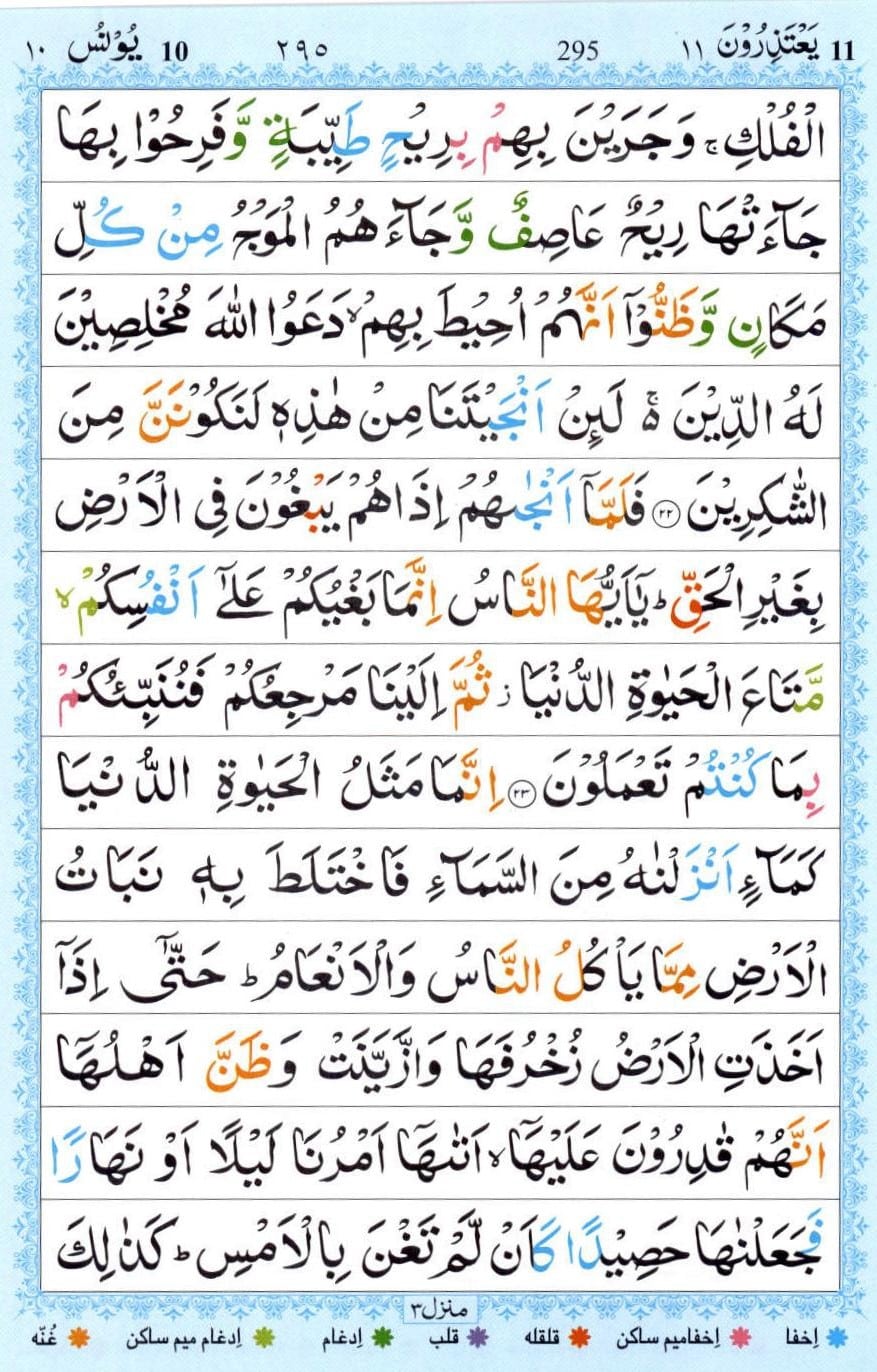 11 يَعْتَذِرُوْنَ ۱۱ 295 ۲۹۵ 10 يُوْنُسُ ۱۰
الْفُلْكِ ۚ وَجَرَيْنَ بِهِمْ بِرِيْحٍ طَيِّبَةٍ وَّفَرِحُوْا بِهَا
جَآءَتْهَا رِيْحٌ عَاصِفٌ وَّجَآءَهُمُ الْمَوْجُ مِنْ كُلِّ
مَكَانٍ وَّظَنُّوْۤا اَنَّهُمْ اُحِيْطَ بِهِمْ ۙ دَعَوُا اللّٰهَ مُخْلِصِيْنَ
لَهُ الدِّيْنَ ۚ۬ لَئِنْ اَنْجَيْتَنَا مِنْ هٰذِهٖ لَنَكُوْنَنَّ مِنَ
الشّٰكِرِيْنَ ۝۲۲ فَلَمَّاۤ اَنْجٰىهُمْ اِذَا هُمْ يَبْغُوْنَ فِى الْاَرْضِ
بِغَيْرِ الْحَقِّ ؕ يٰۤاَيُّهَا النَّاسُ اِنَّمَا بَغْيُكُمْ عَلٰۤى اَنْفُسِكُمْ ۙ
مَّتَاعَ الْحَيٰوةِ الدُّنْيَا ؗ ثُمَّ اِلَيْنَا مَرْجِعُكُمْ فَنُنَبِّئُكُمْ
بِمَا كُنْتُمْ تَعْمَلُوْنَ ۝۲۳ اِنَّمَا مَثَلُ الْحَيٰوةِ الدُّنْيَا
كَمَآءٍ اَنْزَلْنٰهُ مِنَ السَّمَآءِ فَاخْتَلَطَ بِهٖ نَبَاتُ
الْاَرْضِ مِمَّا يَاْكُلُ النَّاسُ وَالْاَنْعَامُ ؕ حَتّٰۤى اِذَاۤ
اَخَذَتِ الْاَرْضُ زُخْرُفَهَا وَازَّيَّنَتْ وَظَنَّ اَهْلُهَاۤ
اَنَّهُمْ قٰدِرُوْنَ عَلَيْهَاۤ ۙ اَتٰىهَاۤ اَمْرُنَا لَيْلًا اَوْ نَهَارًا
فَجَعَلْنٰهَا حَصِيْدًا كَاَنْ لَّمْ تَغْنَ بِالْاَمْسِ ؕ كَذٰلِكَ
منزل ۳
اِخفا اِخفامیم ساکن قلقله قلب اِدغام اِدغام میم ساکن غُنّه